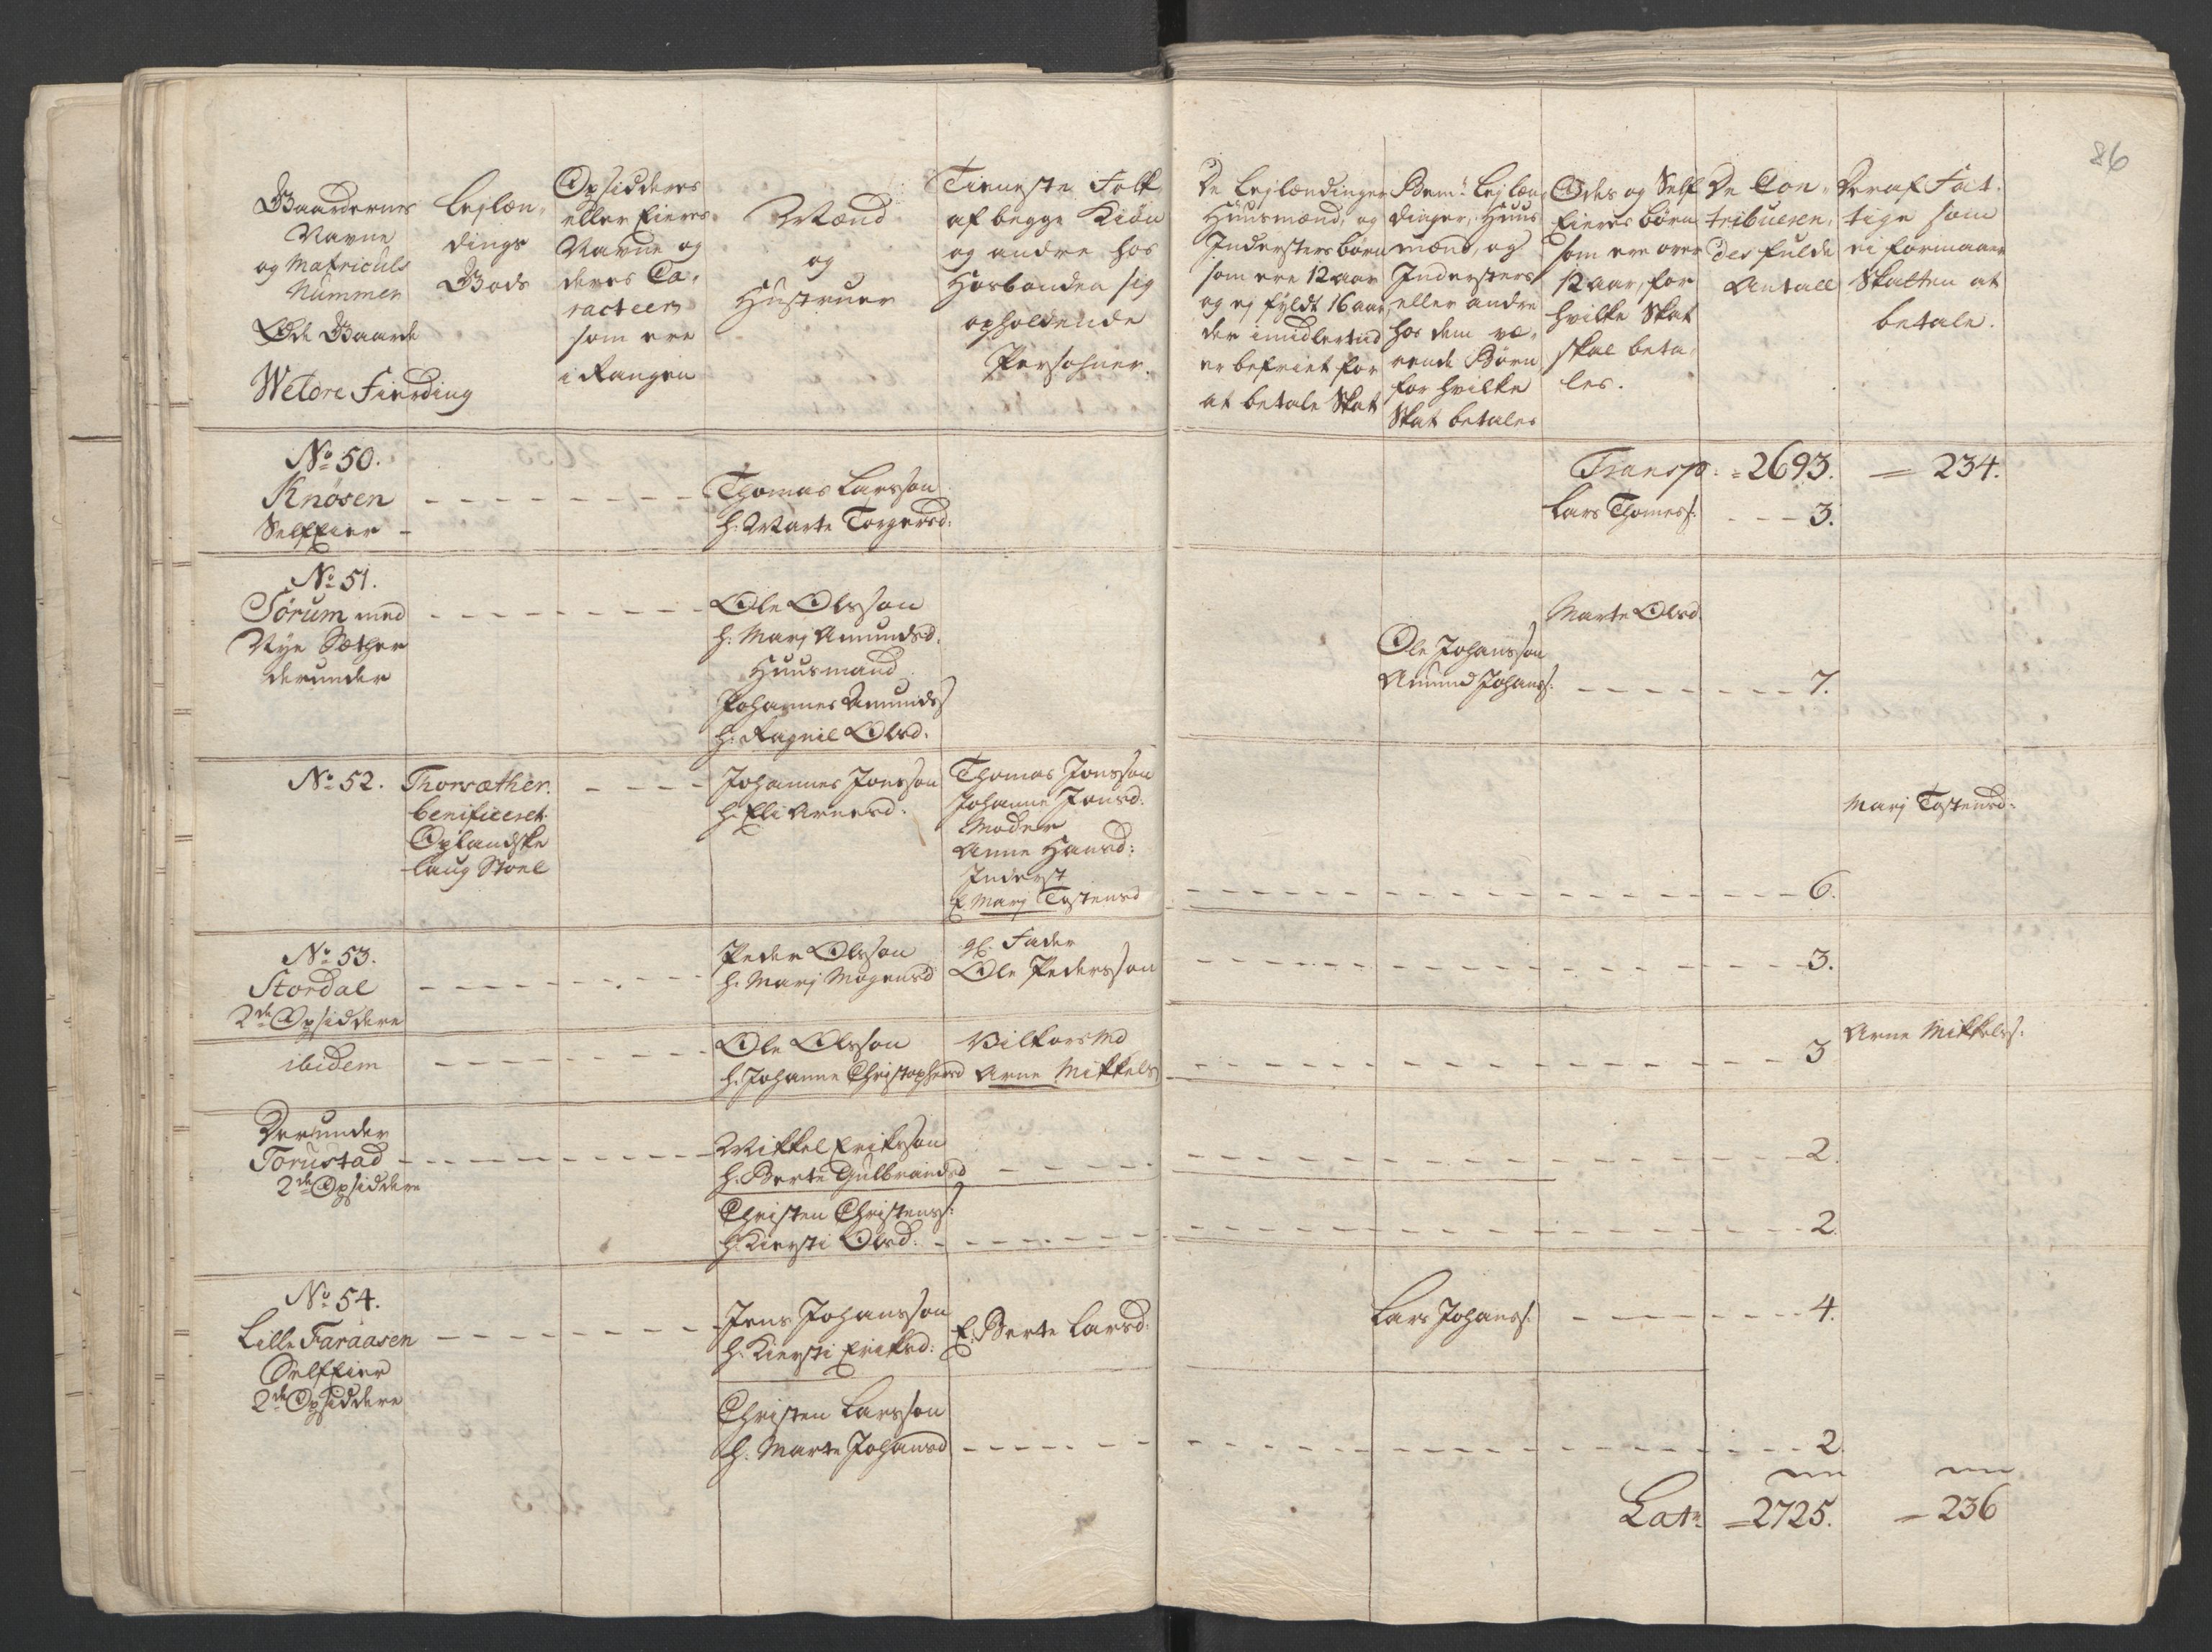 86
Gaardernes
Navne
og Matriculs
Nummer
Øde Gaarde
Wetere Fierding
Lejlæn-
dings
Gods
Opsidderes
eller Eieres
Navne og
deres Ca-
racteer
som ere
i Rangen
Mænd
og
Hustruer
Tieneste Folk
af begge Kiøn
og andre hos
Hosbonden sig
opholdende
Persohner.
De Lejlændinger
Huusmænd, og
Indersters børn
som ere 12 aar
og ej fyldt 16 aar,
der imidlertid
er befriet for
at betale Skat
Bem.te Lejlæn-
dinger, Huus
mænd, og
Indersters
eller andre
hos dem væ-
rende Børn
for hvilke
Skat betales
Odels og Self
Eieres børn
som ere over
12 aar, for
hvilke Skat
skal beta-
les.
De Con-
tribueren-
des fulde
Antall
Deraf Fat-
tige som
ei formaaer
Skatten at
betale.
No 50.
Knøsen
SelfEier -
Thomas Larsson
h: Marte Torgersd:
Transp: = 2693. = 234.
Lars Thomess: - - - 3.
No 51.
Sørum med
Nye Sæther
derunder
Ole Olsson
h: Marj Amundsd.
Huusmand
Johannes Amunds
h: Ragnil Olsd.
Marte Olsd.
Ole Johansson
Amund Johanss: - - - 7.
No 52. Thorsæther.
benificeret
Oplandske
laug Stoel
Johannes Jonsson
h: Eli Arnesd.
Thomas Jonsson
Johanne Jonsd:
Moder
Anne Hansd:
Inderst
E Marj Tostensd
6.
Marj Tostensd:
No 53.
Stordal
2de Opsiddere
Peder Olsson
h: Marj Mogensd
gl. Fader
Ole Pedersson
3.
ibidem
Ole Olsson
h. Johanne Christophersd
Vilkors Md
Arne Mikkels
3
Arne Mikkelss:
Derunder
Torustad
2de Opsiddere
Mikkel Eriksson
h. Berte Gulbrandsd
2.
Christen Christenss:
h. Kiersti Olsd:
2.
No 54.
Lille Faraasen
SelfEier
2de Opsiddere
Jens Johansson
h. Kiersti Eriksd:
E. Berte Larsd:
Lars Johanss:
4.
Christen Larsson
h. Marte Johansd
2.
Lat: = 2725. = 236